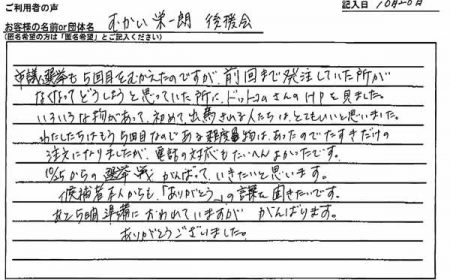 ご利用者の声
記入日 10月20日
お客様の名前or団体名 むかい栄一朗 後援会
(匿名希望の方は「匿名希望」とご記入ください)
市議選挙も5回目をむかえたのですが、前回まで発注していた所が
なくなってどうしようと思っていた所に、ドットコムさんのHPを見ました。
いろいろな物があって、初めて出馬される人たちは、とてもいいと思いました。
わたしたちはもう5回目なのである程度量物は、あったのでたすきだけの
注文になりましたが、電話の対応もたいへんよかったです。
10/25からの選挙戦がんばって、いきたいと思います。
候補者本人からも、「ありがとう」の言葉を聞きたいです。
あと5日間準備におわれていますががんばります。
ありがとうございました。